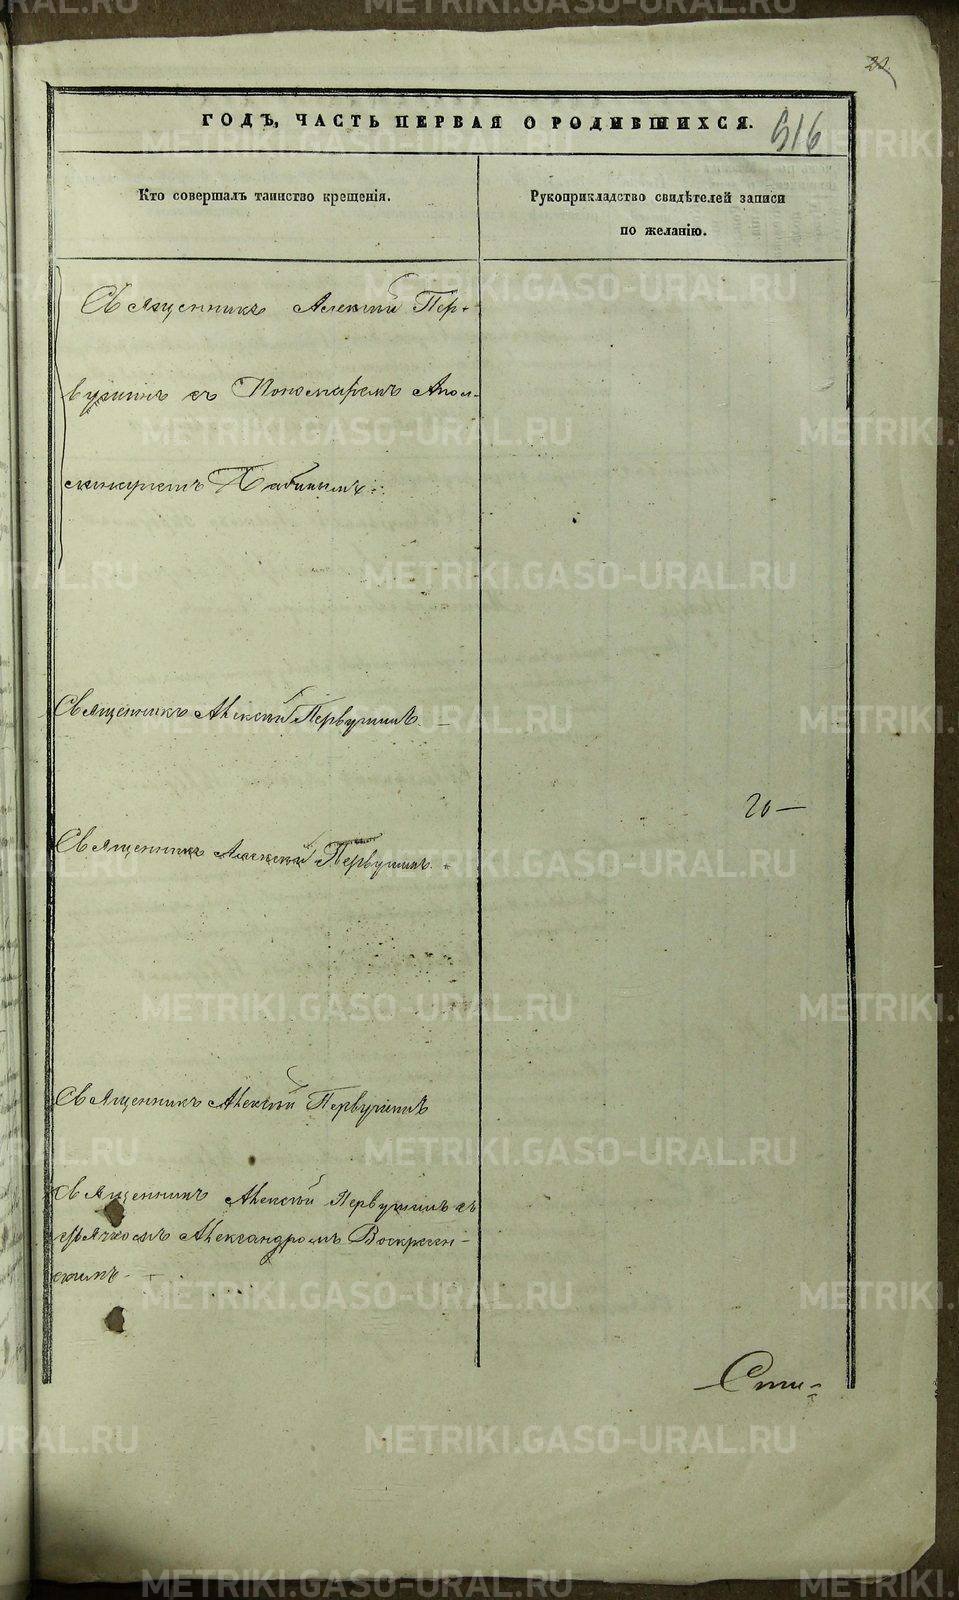 22
ГОДЪ, ЧАСТЬ ПЕРВАЯ О РОДИВШИХСЯ.
516
Кто совершалъ таинство крещенія.
Рукоприкладство свидѣтелей записи
по желанію.
Священникъ Алексій Пер-
вушинъ съ Пономаремъ Апол-
Бабинымъ
Священникъ Алексій Первушинъ.
20—
Священникъ Алексій Первушинъ.
Священникъ Алексій Первушинъ
Священникъ Алексій Первушинъ съ
дьячкомъ Александромъ Воскресен-
скимъ
METRIKI.GASO-URAL.RU